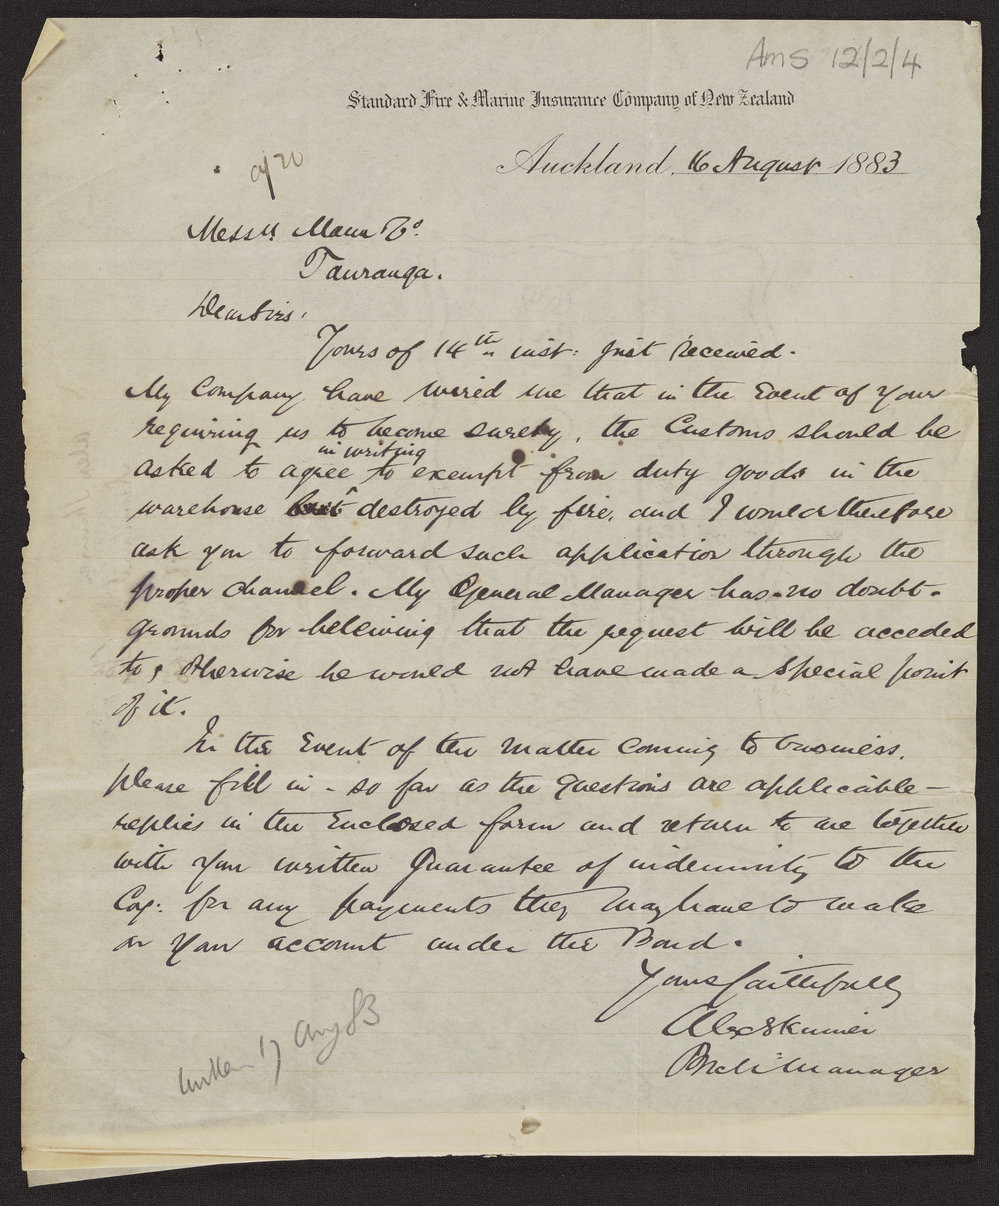 Ams 12/2/4
Standard Fire & Marine Insurance Company of New Zealand
Auckland, 16 August 1883
Messrs Mann & Co.
Tauranga.
Dear Sirs,
Yours of 14th inst: just received.
My Company have wired me that in the Event of your
requiring us to become surety, the Customs should be
in writing
asked to agree ^ to exempt from duty goods in the
warehouse destroyed by fire, and I would therefore
ask you to forward such application through the
proper channel. My General Manager has no doubt
grounds for beleiving that the request will be acceded
to, otherwise he would not have made a special point
of it.
In the Event of the matter coming to business,
please fill in - so far as the questions are applicable -
replies in the Enclosed form and return to me together
with your written Guarantee of indemnity to the
Coy: for any payments they may have to make
on your account under the Bond.
Yours faithfully
Alex Skinner
Brch: Manager
written 17 Aug 83